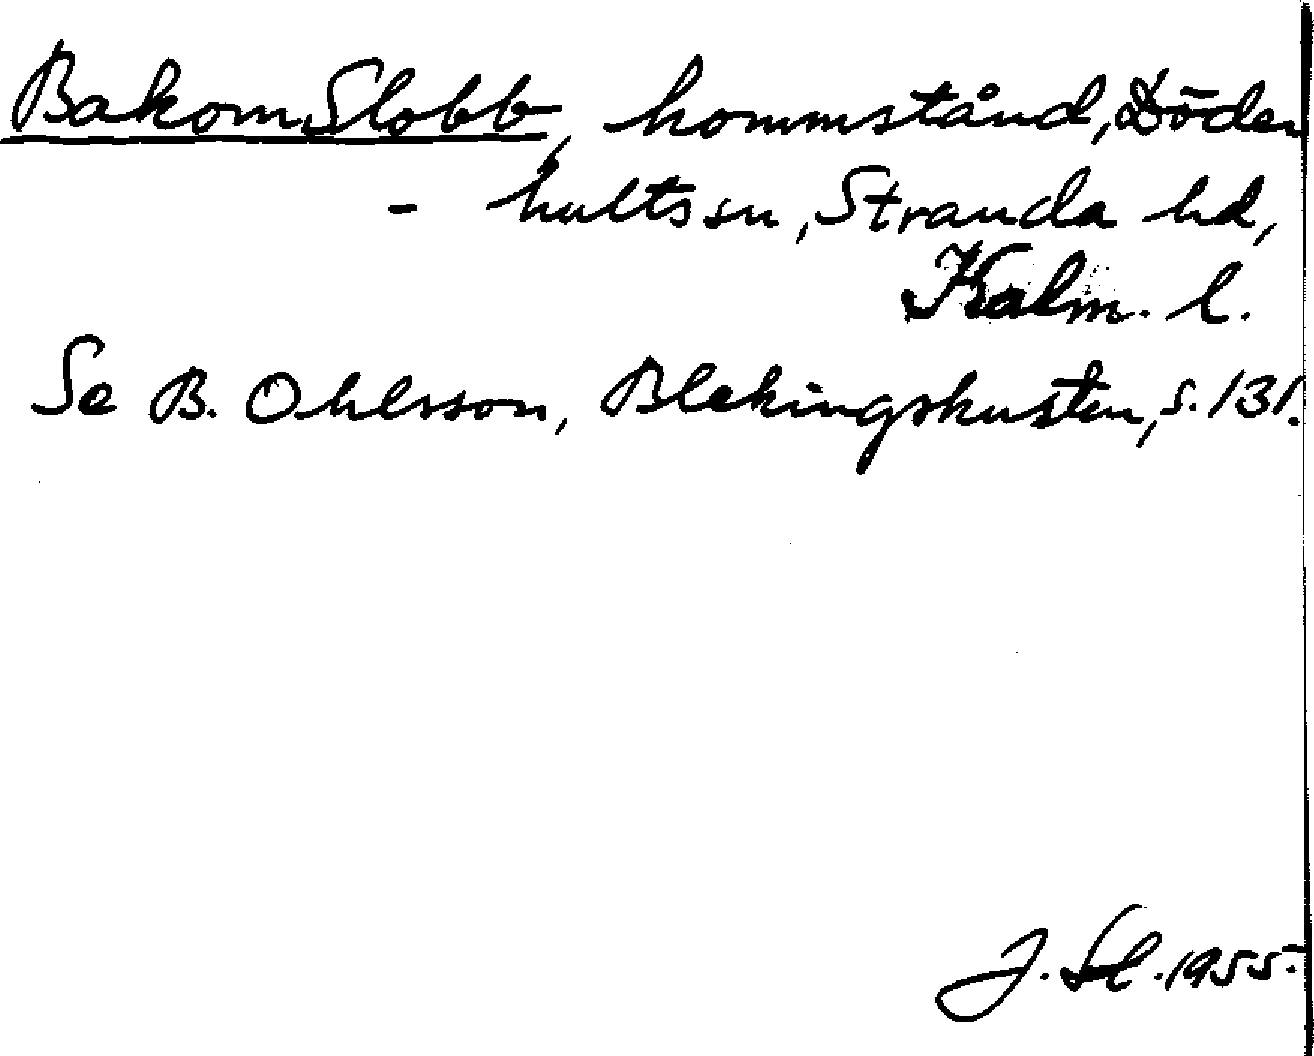 Bakom Slobb, hommstånd, Döder
- hultssn, Stranda hd,
Kalm. l.
Se B. Ohlsson, Blekingskusten, s. 131.
J. Sl. 1955.